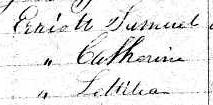 Elliott Samuel
" Catherine
" Letitia